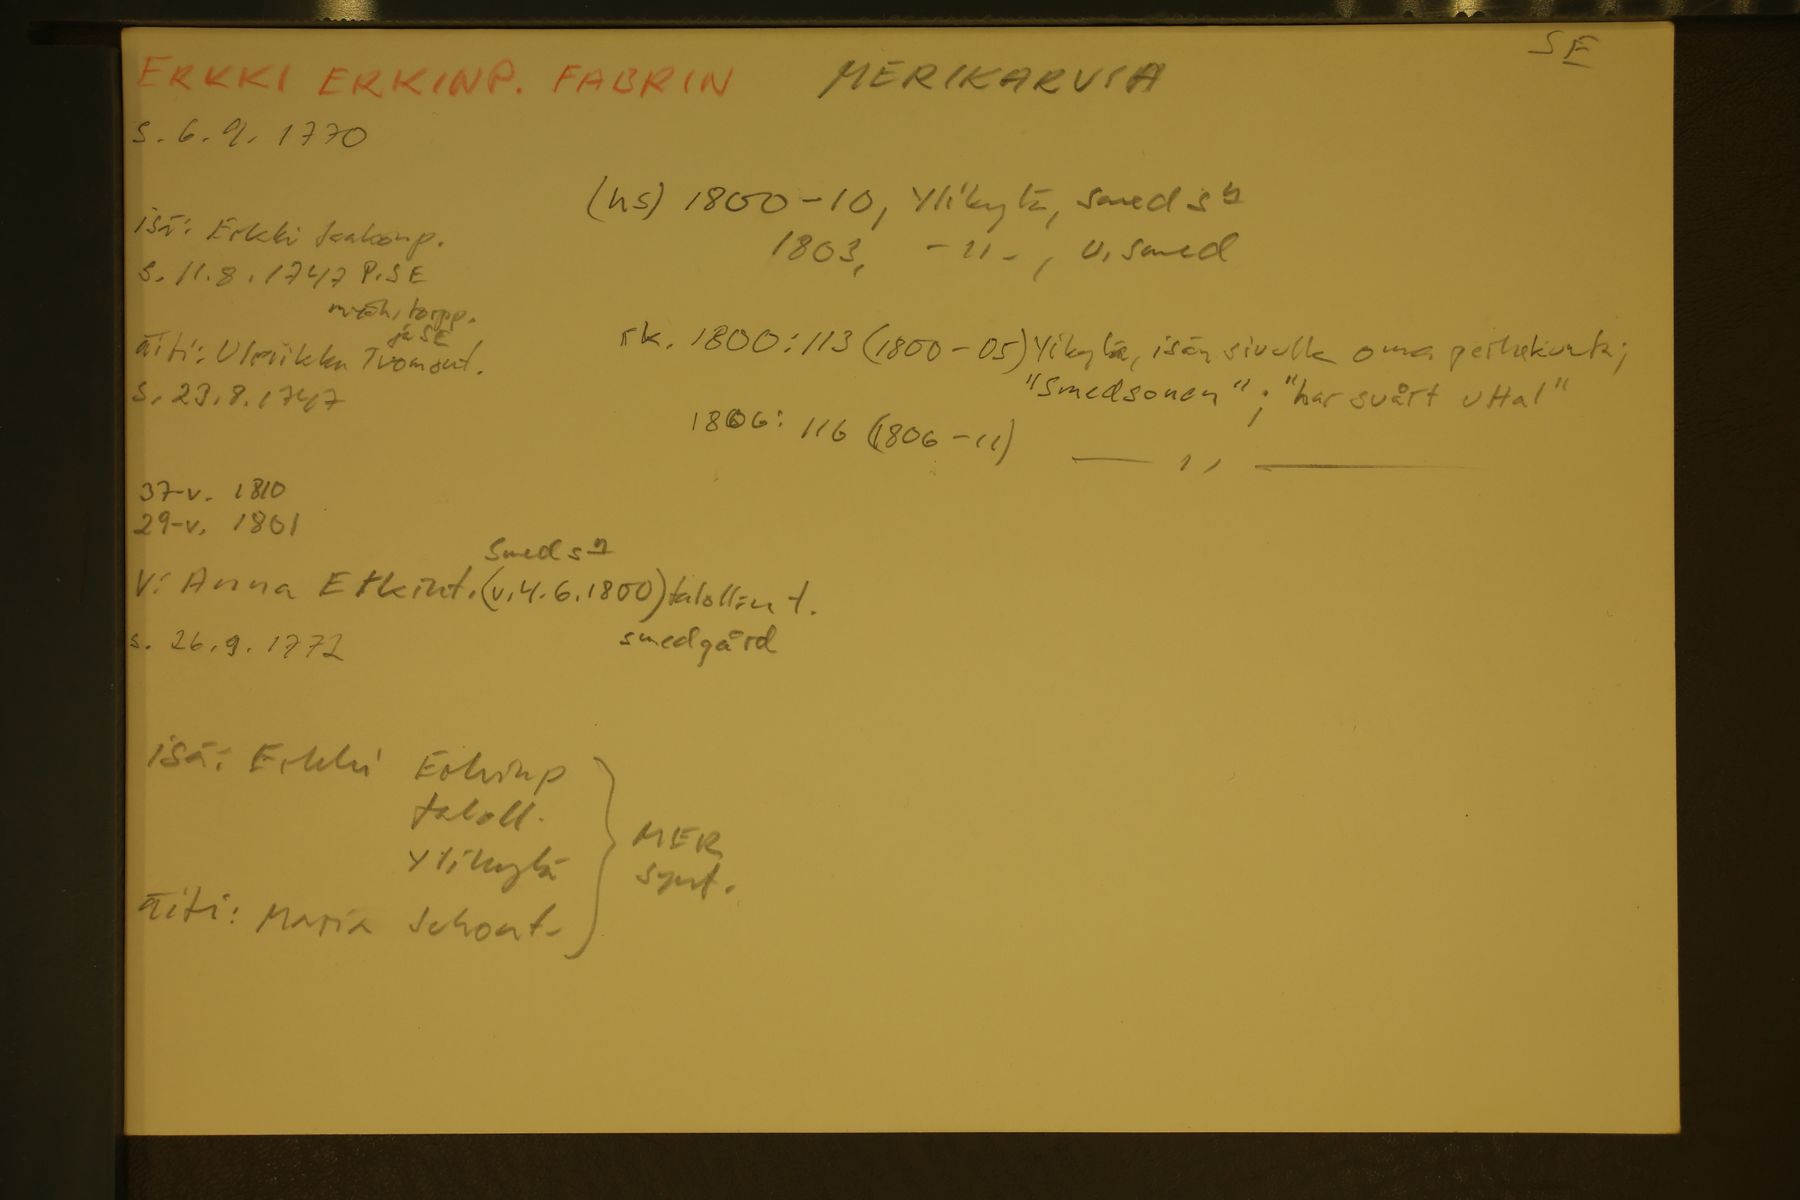 SE
ERKKI ERKINP. FABRIN MERIKARVIA
s. 6.9. 1770
(hs) 1800-10, Ylikylä, smeds
1803, -"-, v. smed
isä: Erkki Jaakonp.
s. 11.8.1747 P.SE
torpp.
ja SE
äiti: Ulriikka Tuomont.
s. 23.8.1747
rk. 1800:113 (1800-05) Ylikylä, isän sivulla oma perhekunta;
"Smedsonen"; "har svårt uttal"
1806: 116 (1806-11) — " —
37-v. 1810
29-v. 1801
smeds
v: Anna Erkint. (v. 4.6.1800) talollin t.
s. 26.9. 1772
smedgård
isä: Erkki Erkinp
taloll.
Ylikylä
MER
synt.
äiti: Maria Juhont.